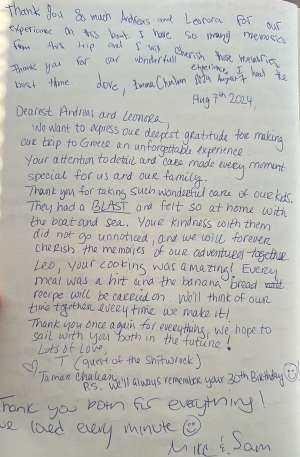 Thank you so much Andreas and Leonora for our
experience on this boat. I have so many memories
from this trip and I will cherish those memories.
Thank you for our wonderfull experience, I had the
best time love, 2024 August
Aug 7th 2024,
Dearest Andreas and Leonora,
We want to express our deepest gratitude for making
our trip to Greece an unforgettable experience.
Your attention to detail and care made every moment
special for us and our family.
Thank you for taking such wonderful care of our kids.
They had a BLAST and felt so at home with
the boat and sea. Your kindness with them
did not go unnoticed, and we will forever
cherish the memories of our adventures together
Leo, your cooking was amazing! Every
meal was a hit and the banana bread
recipe will be carried on. We'll think of our
time together every time we make it!
Thank you once again for everything, we hope to
sail with you both in the future!
Lots of Love,
♡ J (quest of the Shitwrock)
P.S. We'll always remember your 30th Birthday ☺
Thank you both for everything!
We loved every minute ☺
Mike & Sam